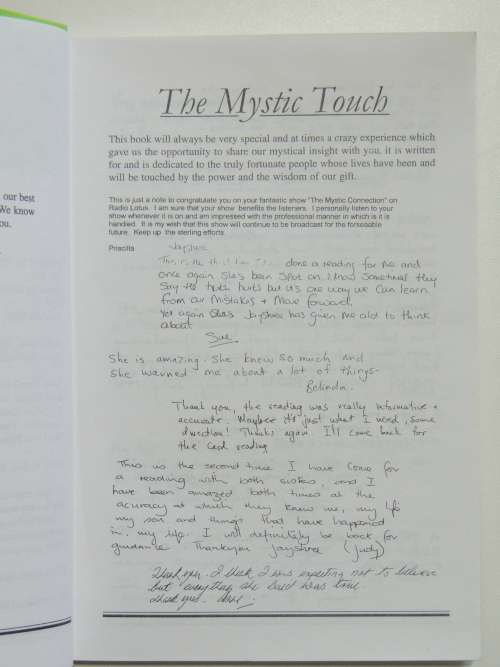 our best
We know
ou.
The Mystic Touch
This book will always be very special and at times a crazy experience which
gave us the opportunity to share our mystical insight with you, it is written
for and is dedicated to the truly fortunate people whose lives have been and
will be touched by the power and the wisdom of our gift.
This is just a note to congratulate you on your fantastic show "The Mystic Connection" on
Radio Lotus. I am sure that your show benefits the listeners. I personally listen to your
show whenever it is on and am impressed with the professional manner in which is it is
handled. It is my wish that this show will continue to be broadcast for the forseeable
future. Keep up the sterling efforts.
Priscilla
Jayshree
This is the third time done a reading for me and
once again She's been Spot on. I know Sometimes they
Say the truth hurts but it's one way we can learn
from our Mistakes + Move forward.
Yet again Jayshree has given me alot to think
about
Sue
She is amazing. She knew so much and
She warned me about a lot of things.
Belinda.
Thank you, the reading was really informative +
accurate. Maybee it's just what I need, some
direction! Thanks again. I'll come back for
the card reading
This is the second time I have come for
a reading with both sisters, and I
have been amazed both times at the
accuracy at which they knew me, my life
my son and things that have happened
in my life. I will definitely be back for
guidance Thankyou Jayshree (Judy)
Thank you. I think I was expecting not to believe
but everything she said was true.
thank you.